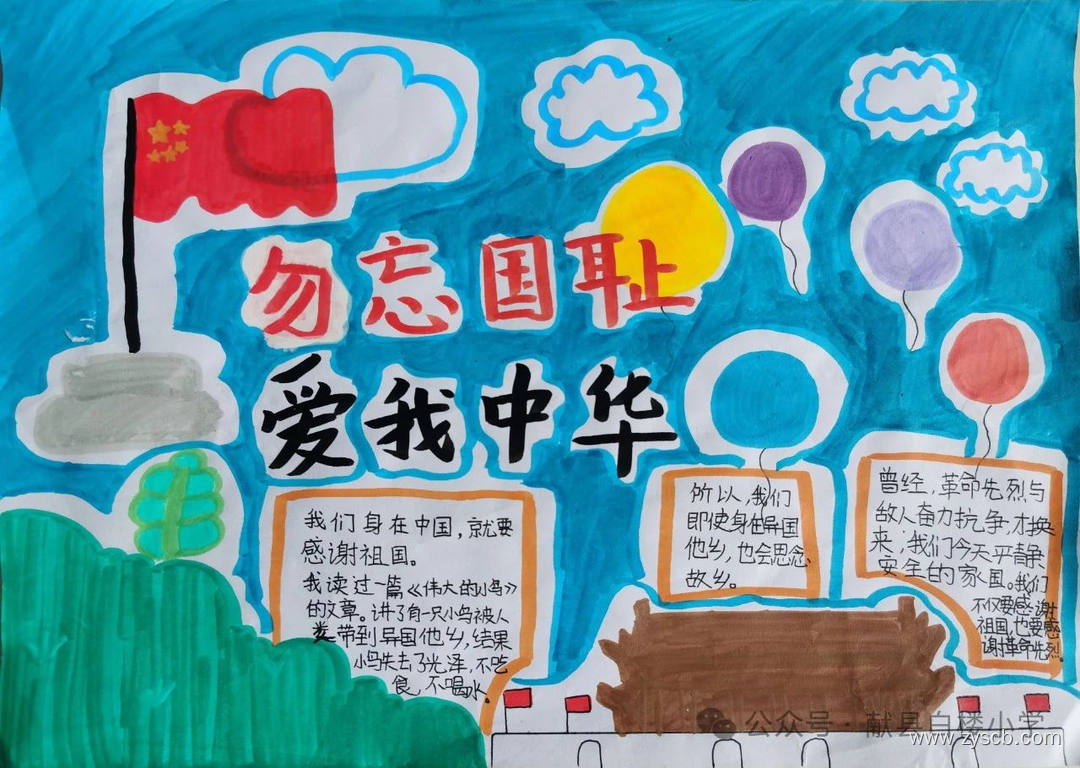 勿忘国耻
爱我中华
我们身在中国,就要
感谢祖国。
我读过一篇《伟大的小鸟》
的文章。讲了有一只小鸟被人
类带到异国他乡,结果
小鸟失去了光泽,不吃
食,不喝水。
所以,我们
即使身在异国
他乡,也会思念
故乡。
曾经,革命先烈与
敌人奋力抗争才换
来,我们今天平静
安全的家国。我们
不仅要感谢
祖国,也要感
谢革命先烈。
公众号·献县白楼小学
www.zyscb.com